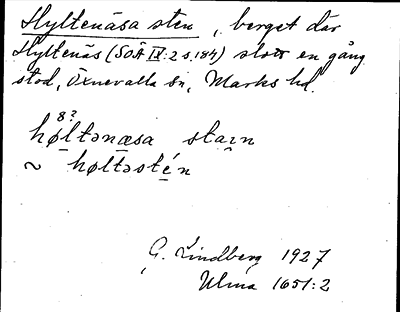 Hyltenäsa sten, berget där
Hyltenäs (SOÄ IX:2 s.184) slott en gång
stod, Öxnevalla sn, Marks hd.
8?
høltənæsa stain
~ høltəstén
G. Lindberg 1927
Ulma 1651:2